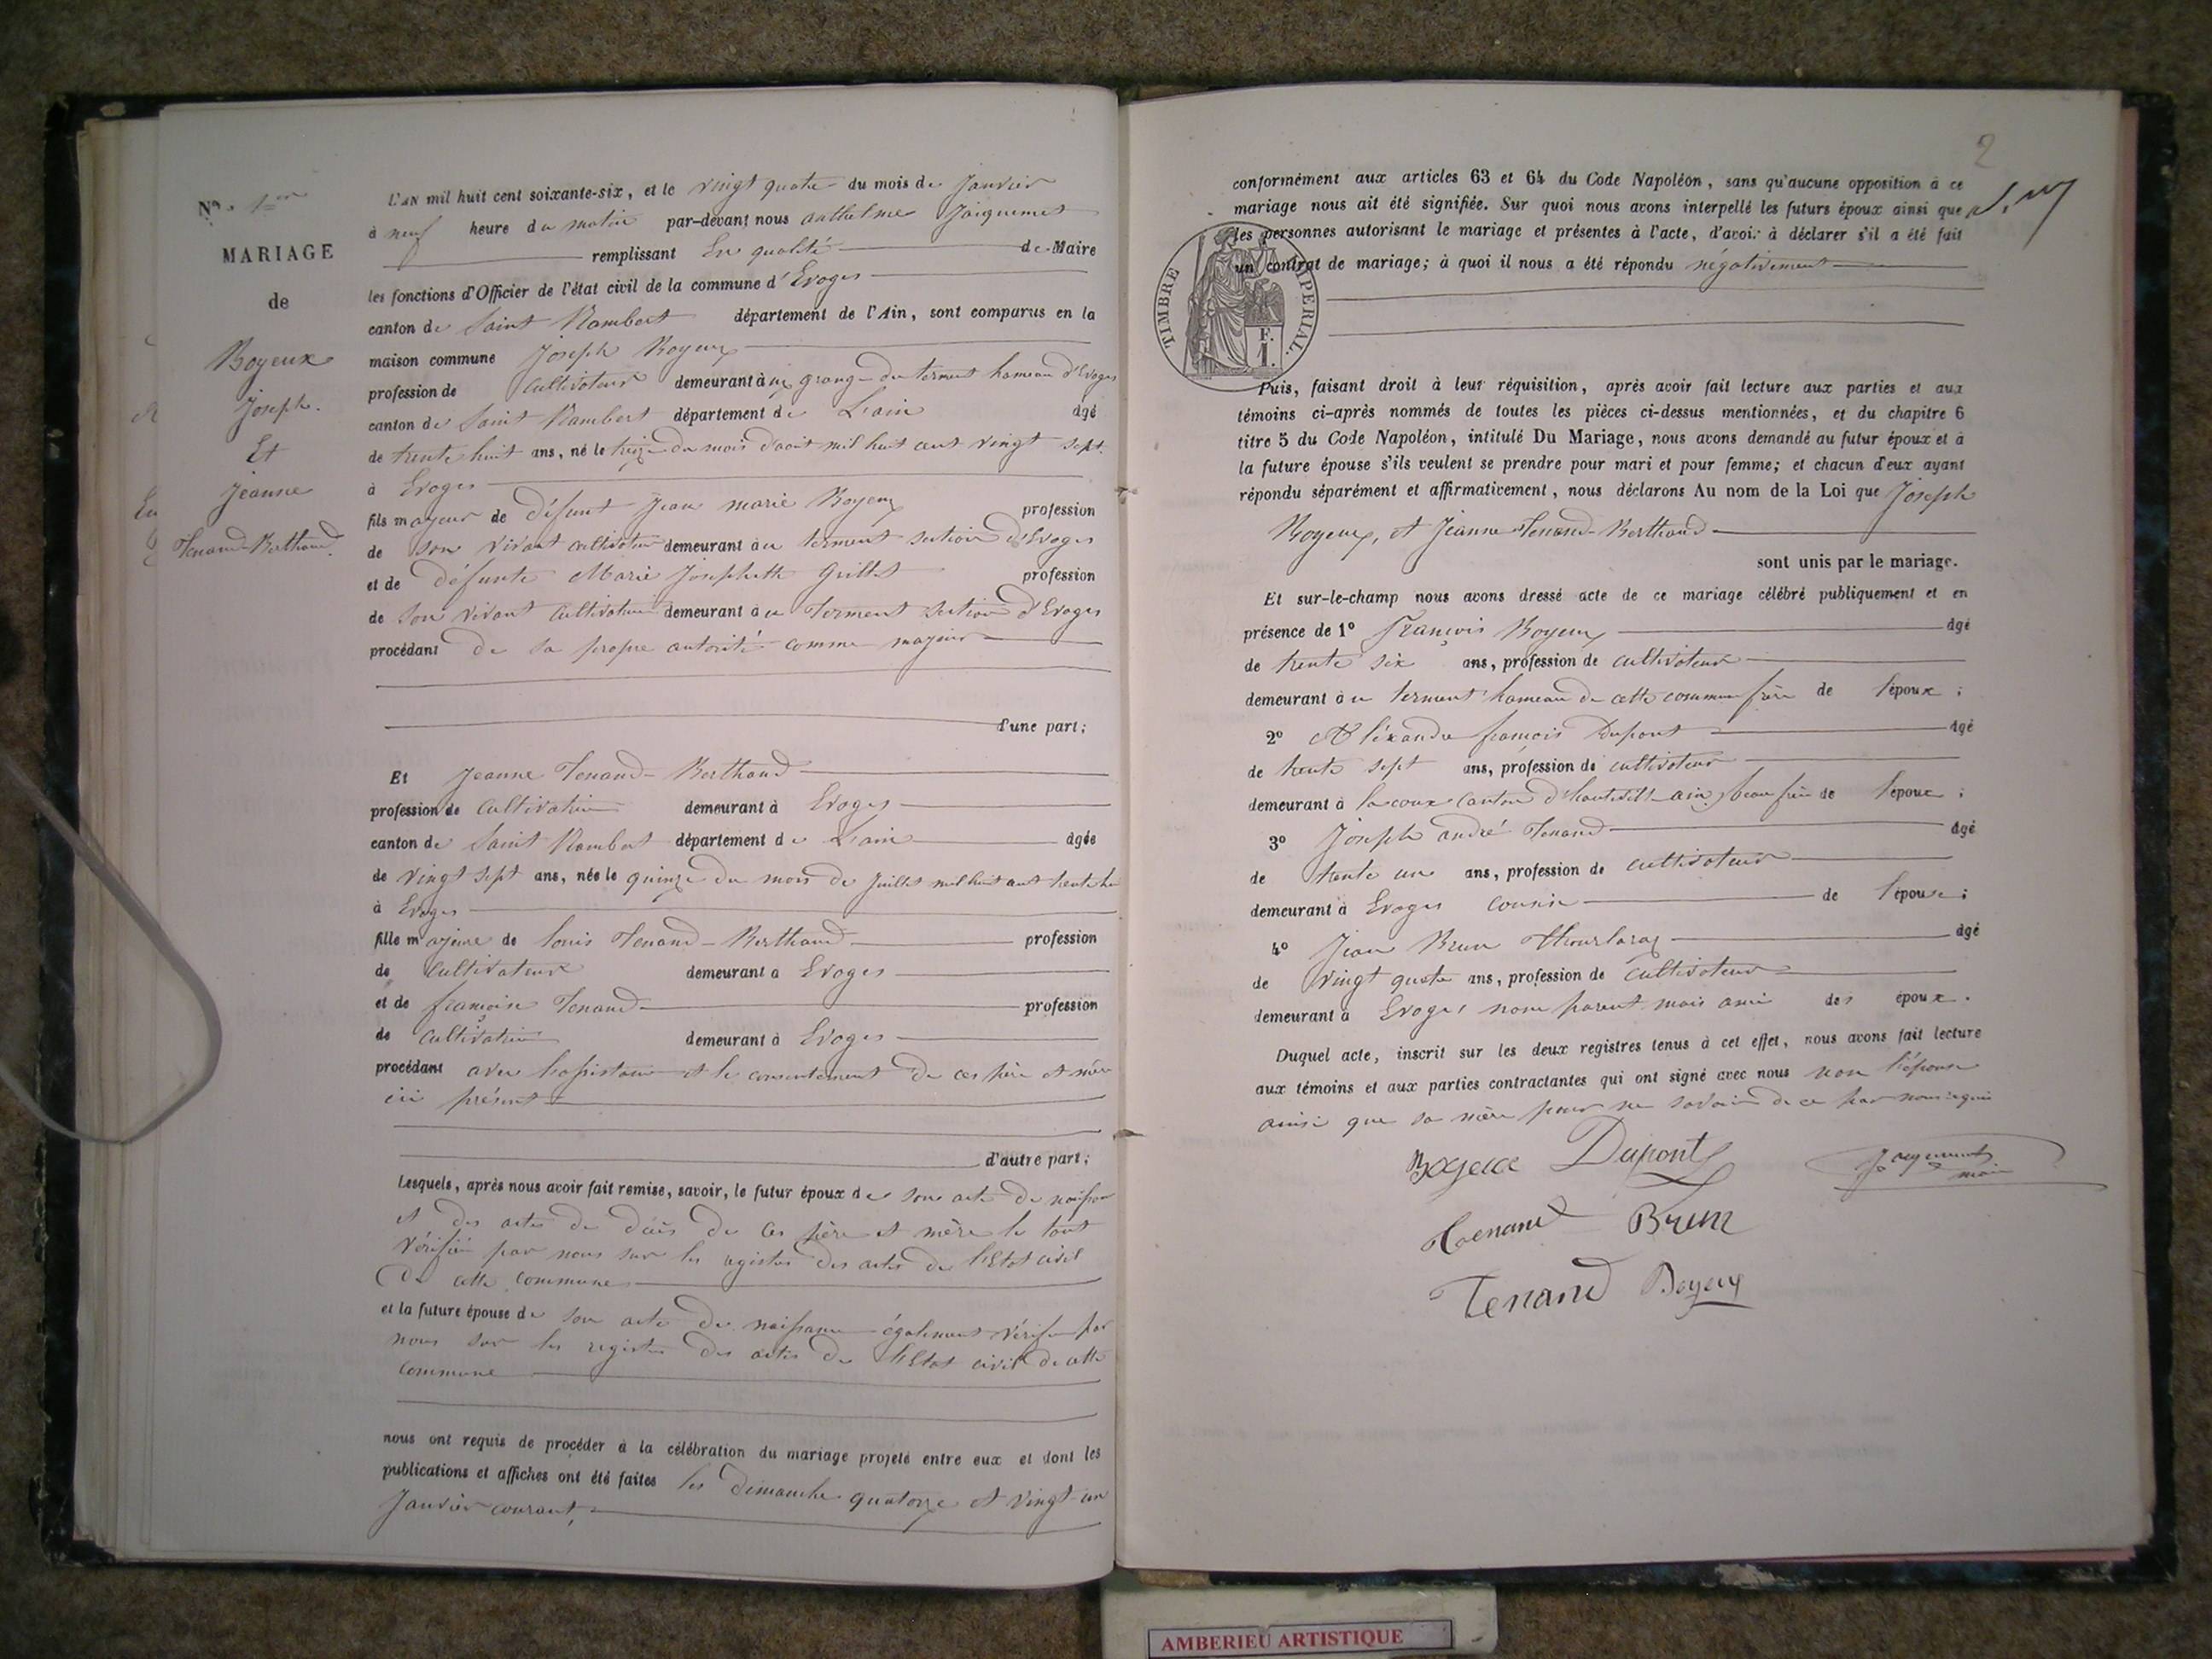 No. 1er
MARIAGE
de
Boyeux
Joseph.
Et
Jeanne
Tenand-Berthaud.
L'AN mil huit cent soixante-six, et le vingt quatre du mois de Janvier
à neuf heure du matin par-devant nous anthelme Jaiquemet
remplissant En qualité de Maire
les fonctions d'Officier de l'état civil de la commune d'Evoges
canton de Saint Rambert département de l'Ain, sont comparus en la
maison commune Joseph Boyeux
profession de cultivateur demeurant à aux grange du terment hameau d'Evoges
canton de Saint Rambert département de L'ain âgé
de trente huit ans, né le treize du mois d'août mil huit cent vingt sept.
à Evoges
fils mayeur de défunt Jean marie Boyeux profession
de son vivant cultivateur demeurant à au terment section d'Evoges
et de défunte Marie Josephette Grillet profession
de son vivant cultivatrice demeurant à au Terment section d'Evoges
procédant de sa propre autorité comme majeur
d'une part;
Et Jeanne Tenand-Berthaud
profession de cultivatrice demeurant à Evoges
canton de Saint Rambert département de L'ain âgée
de vingt sept ans, née le quinze du mois de Juillet mil huit cent trente hu
à Evoges
fille majeure de Louis Tenand-Berthaud profession
de Cultivateur demeurant à Evoges
et de françoise Tenand profession
de cultivatrice demeurant à Evoges
procédant avec l'assistance et le consentement de ces père et mère
ici présent
d'autre part;
Lesquels, après nous avoir fait remise, savoir, le futur époux de son acte de naissance
et des actes de décès de ces père et mère le tout
vérifié par nous sur les registres des actes de l'Etat civil
de cette commune
et la future épouse de son acte de naissance également vérifié par
nous sur les registres des actes de l'Etat civil de cette
commune
nous ont requis de procéder à la célébration du mariage projeté entre eux et dont les
publications et affiches ont été faites les dimanche quatorze et vingt-un
Janvier courant,
2
conformément aux articles 63 et 64 du Code Napoléon, sans qu'aucune opposition à ce
mariage nous ait été signifiée. Sur quoi nous avons interpellé les futurs époux ainsi que
les personnes autorisant le mariage et présentes à l'acte, d'avoir à déclarer s'il a été fait
un contrat de mariage; à quoi il nous a été répondu négativement
TIMBRE IMPERIAL.
F.
1.
Puis, faisant droit à leur réquisition, après avoir fait lecture aux parties et aux
témoins ci-après nommés de toutes les pièces ci-dessus mentionnées, et du chapitre 6
titre 5 du Code Napoléon, intitulé Du Mariage, nous avons demandé au futur époux et à
la future épouse s'ils veulent se prendre pour mari et pour femme; et chacun d'eux ayant
répondu séparément et affirmativement, nous déclarons Au nom de la Loi que Joseph
Boyeux, et Jeanne Tenand-Berthaud
sont unis par le mariage.
Et sur-le-champ nous avons dressé acte de ce mariage célébré publiquement et en
présence de 1º François Boyeux âgé
de trente six ans, profession de cultivateur
demeurant à au terment hameau de cette commune frère de l'époux;
2º Aléxandre françois Dupont âgé
de trente sept ans, profession de cultivateur
demeurant à lacoux canton d'hauteville ain, beau frère de l'époux;
3º Joseph andré Tenand âgé
de trente un ans, profession de cultivateur
demeurant à Evoges cousin de l'épouse;
4º Jean Brun âgé
de vingt quatre ans, profession de cultivateur
demeurant à Evoges non parent mais ami des époux.
Duquel acte, inscrit sur les deux registres tenus à cet effet, nous avons fait lecture
aux témoins et aux parties contractantes qui ont signé avec nous non l'épouse
ainsi que sa mère pour ne savoir de ce par nous requis
Boyeux Dupont Jaiquemet
maire
Tenand Brun
Tenand Boyeux
AMBERIEU ARTISTIQUE